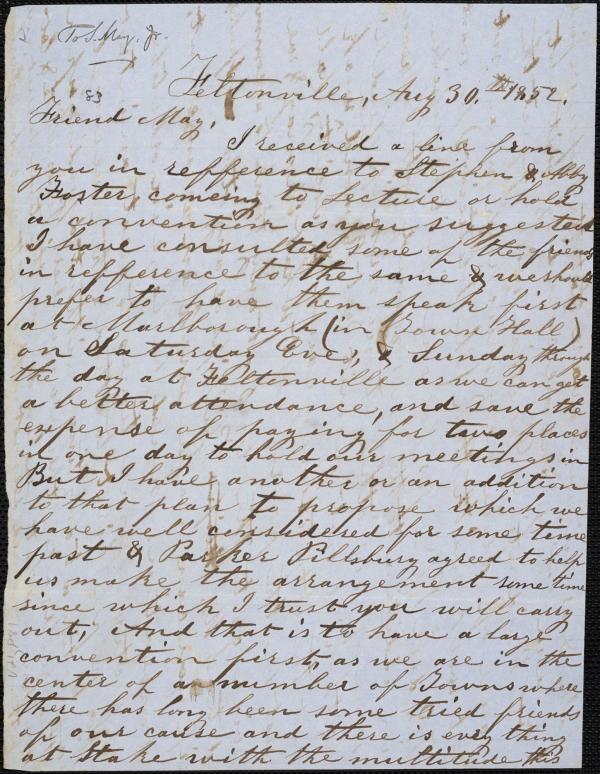 To S. May, Jr.
83
Feltonville, Aug 30.th 1852.
Friend May,
I received a line from
you in refference to Stephen & Abby
Foster, comeing to Lecture or hold
a convention as you suggested
I have consulted some of the friends
in refference to the same & we should
prefer to have them speak first
at Marlborough (in Town Hall)
on Saturday Eve, & Sunday through
the day at Feltonville as we can get
a better attendance, and save the
expense of paying for two places
in one day to hold our meetings in
But I have another or an addition
to that plan to propose which we
have well considered for some time
past & Parker Pillsbury agreed to help
us make the arrangement some time
since which I trust you will carry
out, And that is to have a large
convention first, as we are in the
center of a number of Towns where
there has long been some tried friends
of our cause and there is every thing
at Stake with the multitude this